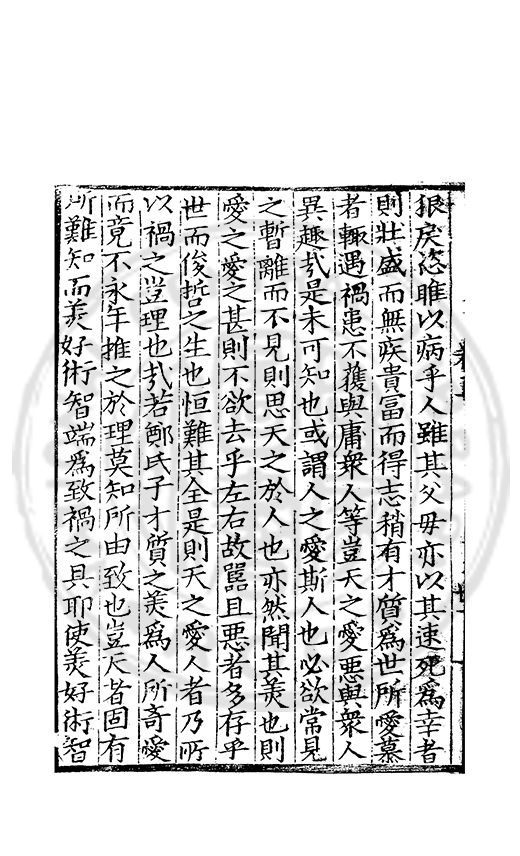 狠戾恣睢以病乎人雖其父毋亦以其速死爲幸者
則壯盛而無疾貴富而得志稍有才質爲世所愛慕
者輙遇禍患不獲與庸衆人等豈天之愛惡與衆人
異趣㢤是未可知也或謂人之愛斯人也必欲常見
之暫離而不見則思天之於人也亦然聞其羙也則
愛之愛之甚則不欲去乎左右故嚚且惡者多存乎
世而俊哲之生也恒難其全是則天之愛人者乃所
以禍之豈理也㢤若鄭氏子才質之羙爲人所奇愛
而竟不永年推之於理莫知所由致也豈天者固有
所難知而羙好術智端爲致禍之具耶使羙好術智